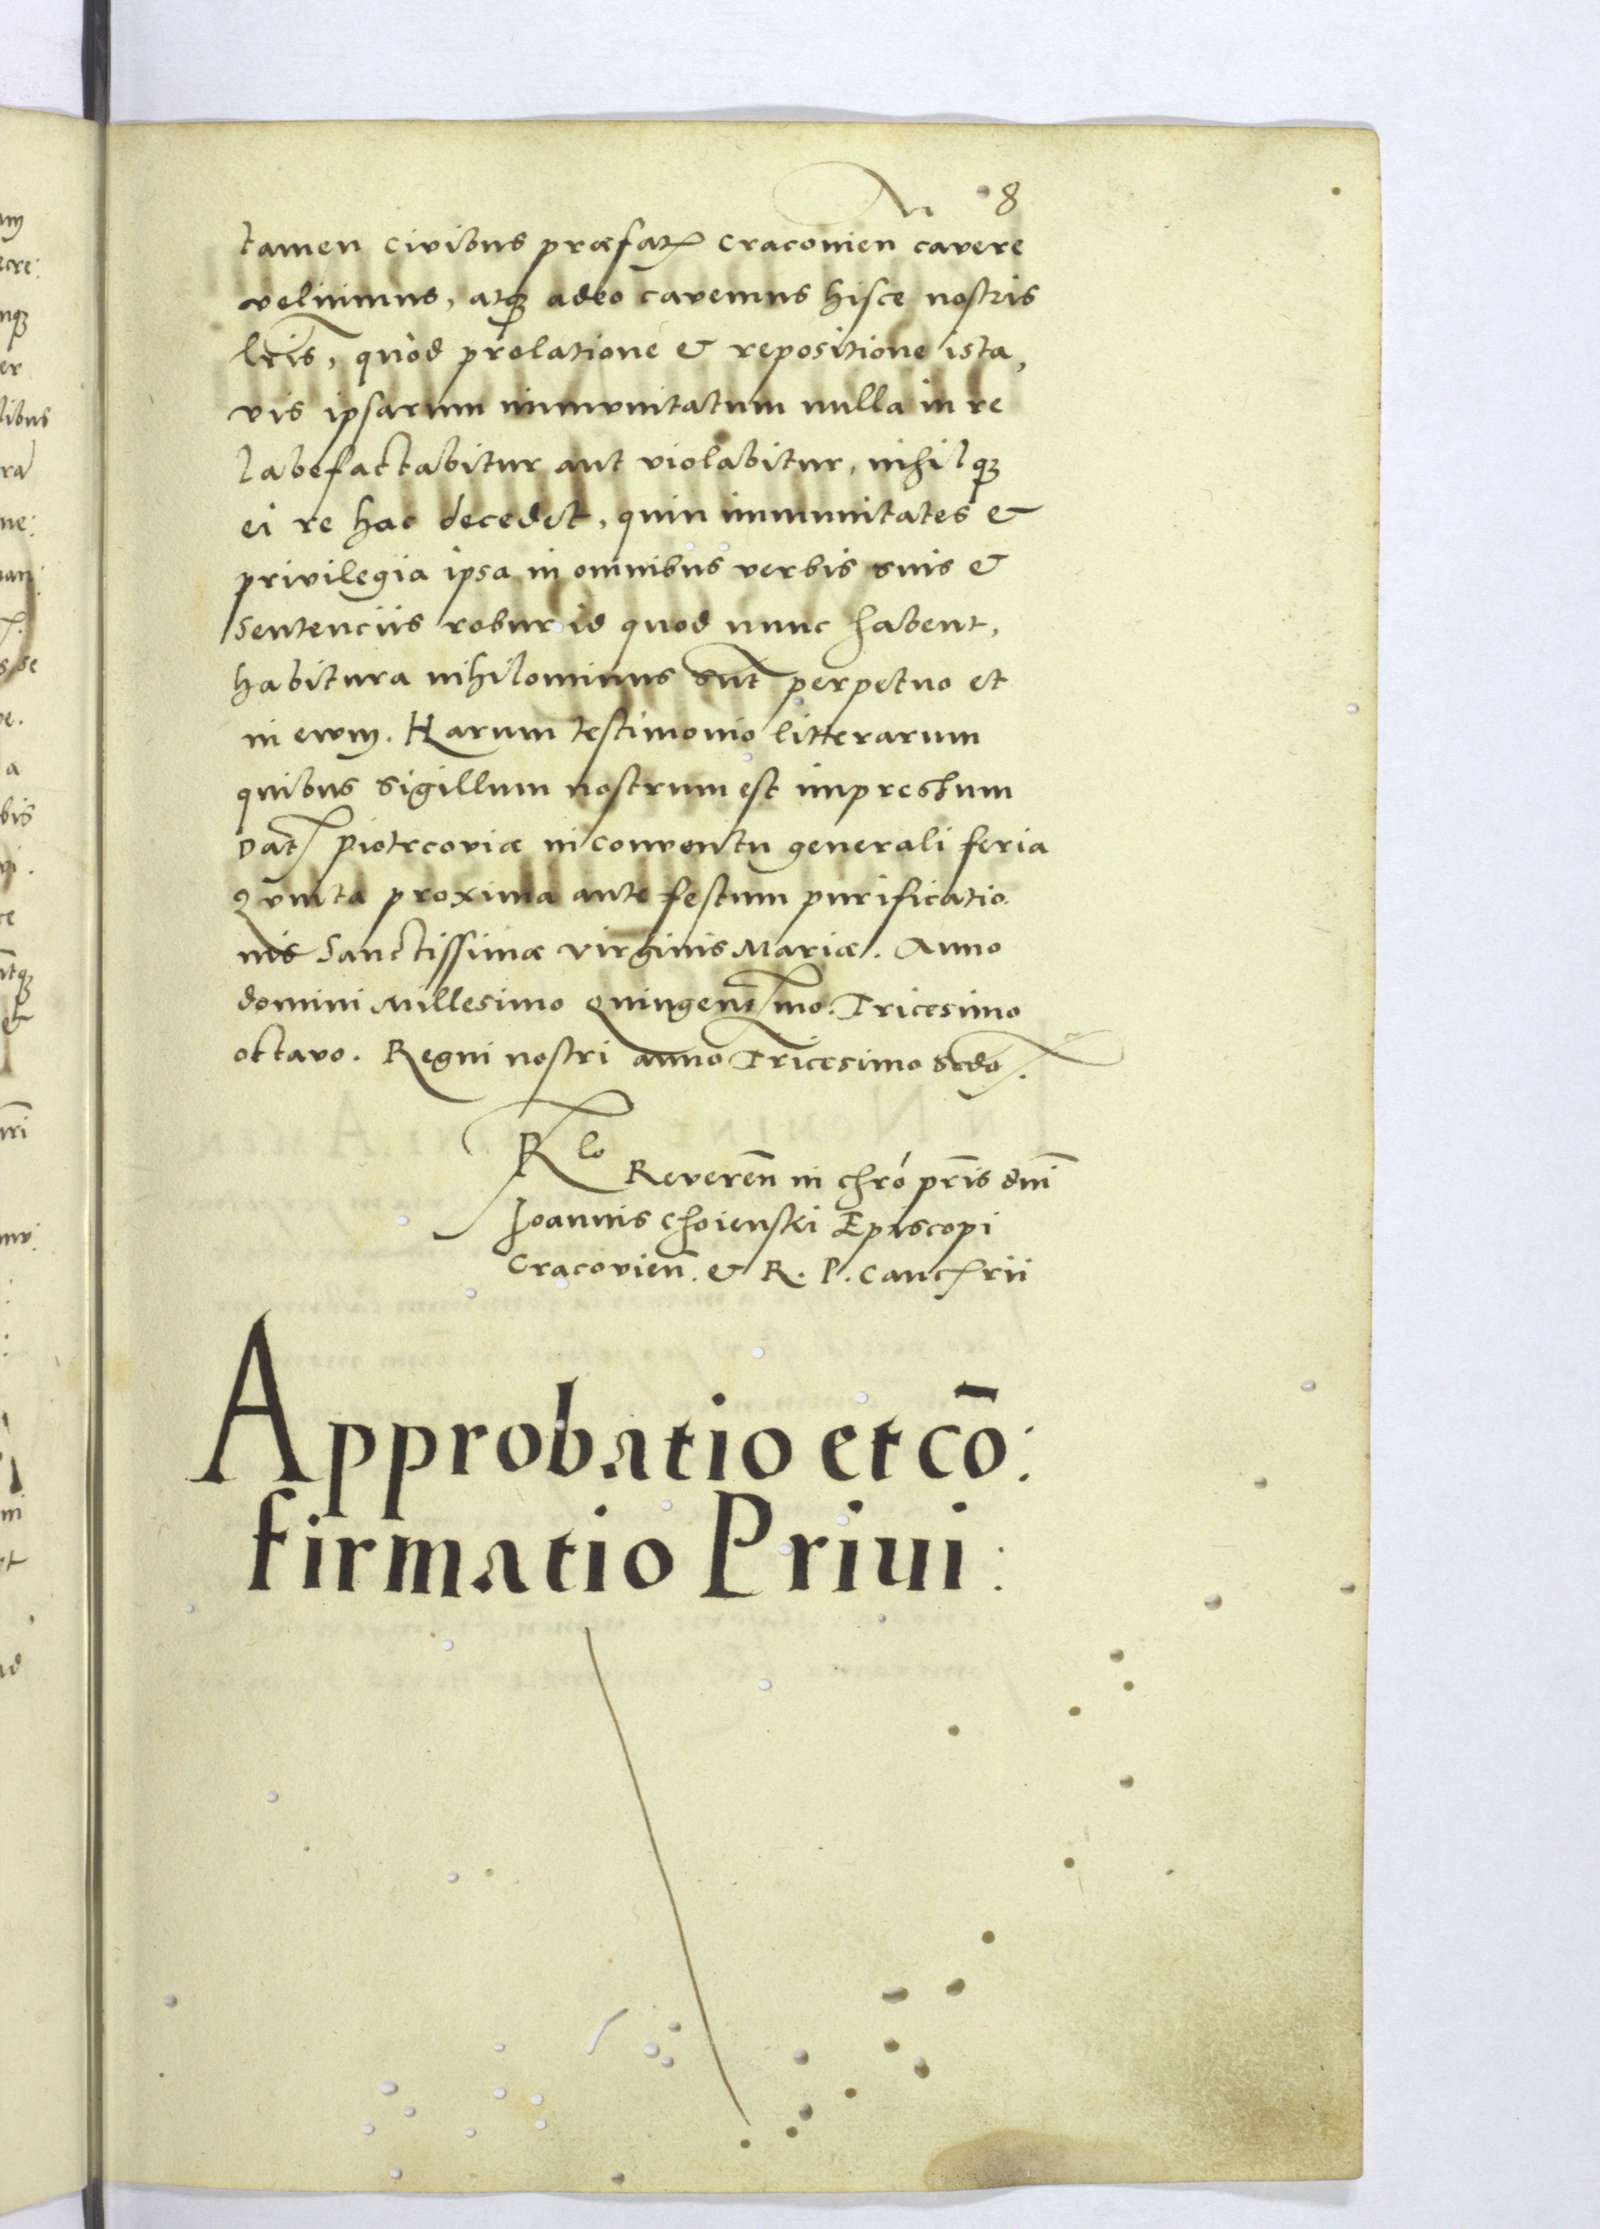 8
tamen civibus præfat. Cracovien cavere
velimus, atq adeo cavemus hisce nostris
lris, quòd prolatione & repositione ista,
vis ipsarum immunitatum nulla in re
labefactabitur aut violabitur, nihilq
ei re hac decedet, quin immunitates &
privilegia ipsa in omnibus verbis suis &
sentenciis robur id quod nunc habent,
habitura nihilominus sunt perpetuo et
in ewm. Harum testimonio litterarum
quibus sigillum nostrum est impressum
Dat Piotrcoviæ in conventu generali feria
Quinta proxima ante festum purificatio
nis Sanctissimæ virginis Mariæ. Anno
domini Millesimo Quingentmo. Tricesimo
octavo. Regni nostri anno Tricesimo scdo.
Rlo
Reveren̄ in chr̄o pr̄is dn̄i
Joannis Choienski Episcopi
Cracovien̄. & R. P. Canc rii
Approbatio et cō:
firmatio Privi: